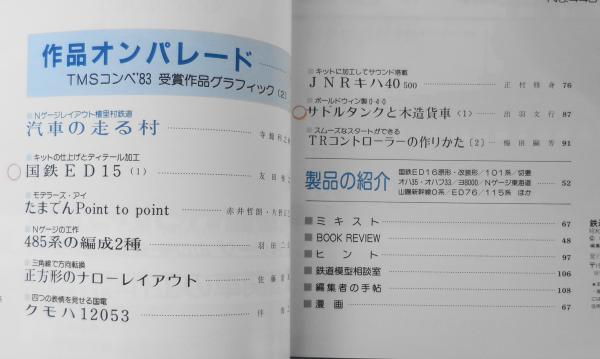 作品オンパレード
TMSコンペ'83 受賞作品グラフィック〔2〕
■Nゲージレイアウト檀里村鉄道
汽車の走る村
■キットの仕上げとディテール加工
国鉄ED15〔1〕
友田
■モデラーズ・アイ
たまてんPoint to point
赤井哲朗・
■Nゲージの工作
485系の編成2種
羽田二
■三角線で方向転換
正方形のナローレイアウト
佐藤
■四つの表情を見せる国電
クモハ12053
■キットに加工してサウンド搭載
JNRキハ40 500
正村修身 76
■ボールドウィン製0-4-0
サドルタンクと木造貨車〔1〕
出羽文行 87
■スムーズなスタートができる
TRコントローラーの作りかた〔2〕
梅田嗣芳 91
製品の紹介
国鉄ED16原形・改装形／101系／切妻
オハ35・オハフ33／ヨ8000／Nゲージ東海道
山陽新幹線0系／ED76／115系 ほか
52
■ミキスト 67
■BOOK REVIEW 48
■ヒント 97
■鉄道模型相談室 106
■編集者の手帖 108
■漫画 67